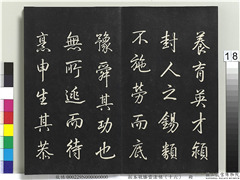 養育英才潁
封人之錫類
不施勞而底
豫舜其功也
無所逃而待
烹申生其恭
18